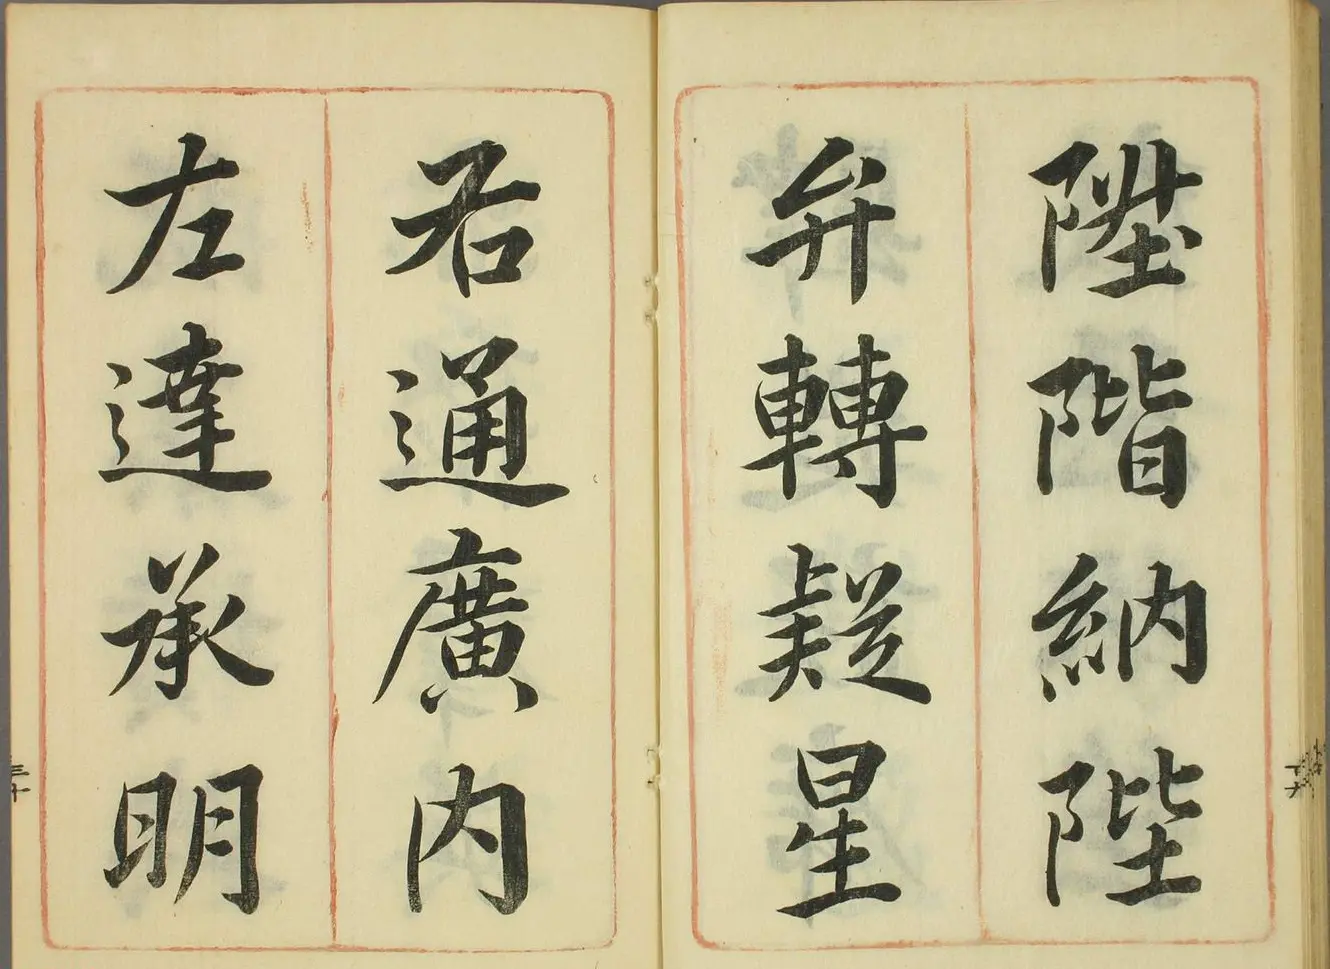 陞階納陛
弁轉疑星
右通廣内
左達承明
三十